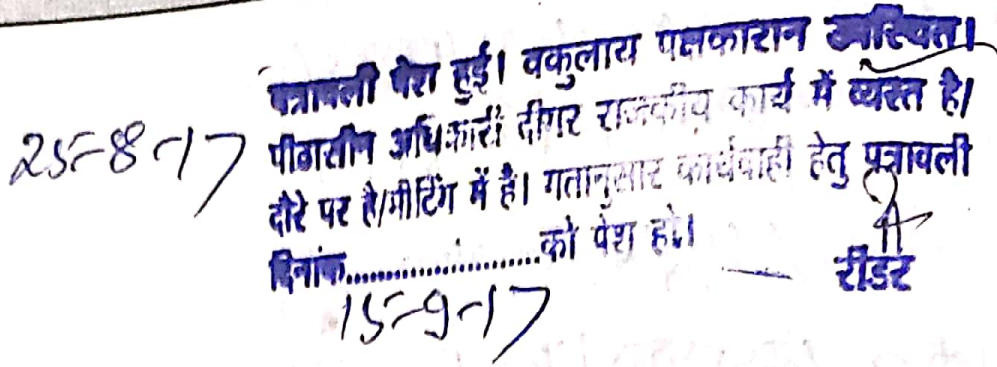 पत्रावली पेश हुई। वकुलाय पक्षकारान उपस्थित।
25-8-17
पीठासीन अधिकारी दीगर राजकीय कार्य में व्यस्त है/
दौरे पर है/मीटिंग में है। गतानुसार कार्यवाही हेतु पत्रावली
दिनांक.........................को पेश हो।
15-9-17
रीडर